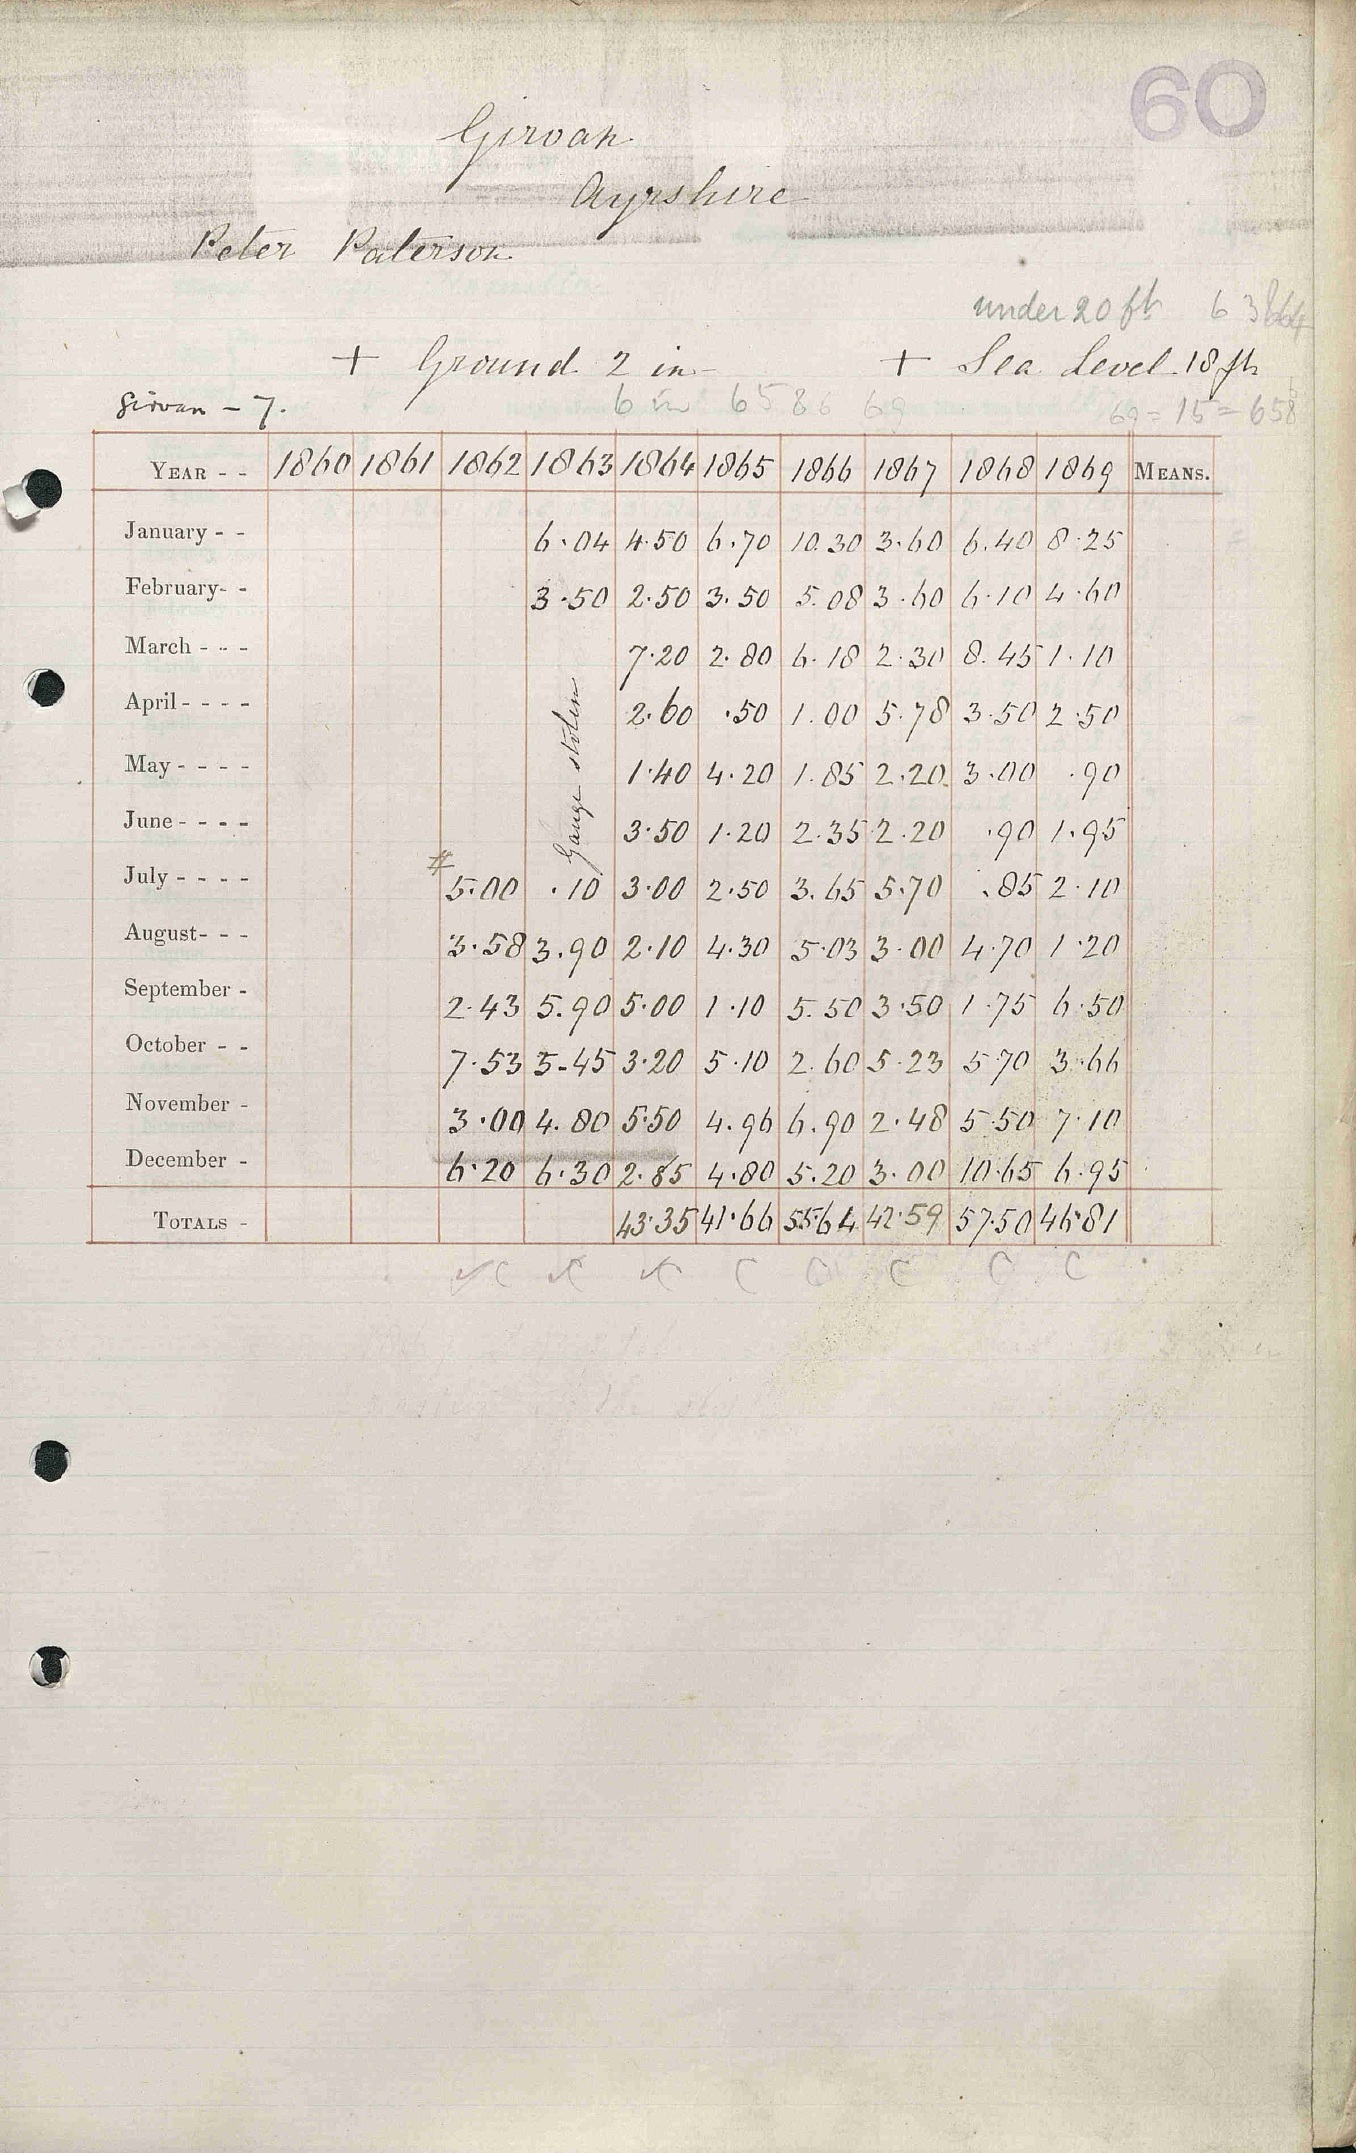 60
Girvan
Ayrshire
Peter Paterson
under 20 ft 63 &64
+ Ground 2 in + Sea Level 18 ft
Girvan - 7. 6 in 65 8 6 69 69 = 15 = 658
YEAR - - 1860 1861 1862 1863 1864 1865 1866 1867 1868 1869 MEANS.
January - - 6.04 4.50 6.70 10.30 3.60 6.40 8.25
February - - 3.50 2.50 3.50 5.08 3.60 6.10 4.60
March - - - 7.20 2.80 6.18 2.30 8.45 1.10
April - - - - 2.60 .50 1.00 5.78 3.50 2.50
May - - - - 1.40 4.20 1.85 2.20 3.00 .90
June - - - - 3.50 1.20 2.35 2.20 .90 1.95
Gauge stolen
July - - - - # 5.00 .10 3.00 2.50 3.65 5.70 .85 2.10
August - - - 3.58 3.90 2.10 4.30 5.03 3.00 4.70 1.20
September - 2.43 5.90 5.00 1.10 5.50 3.50 1.75 6.50
October - - 7.53 5.45 3.20 5.10 2.60 5.23 5.70 3.66
November - 3.00 4.80 5.50 4.96 6.90 2.48 5.50 7.10
December - 6.20 6.30 2.85 4.80 5.20 3.00 10.65 6.95
TOTALS - 43.35 41.66 55.64 42.59 57.50 46.81
C C C C C C C C